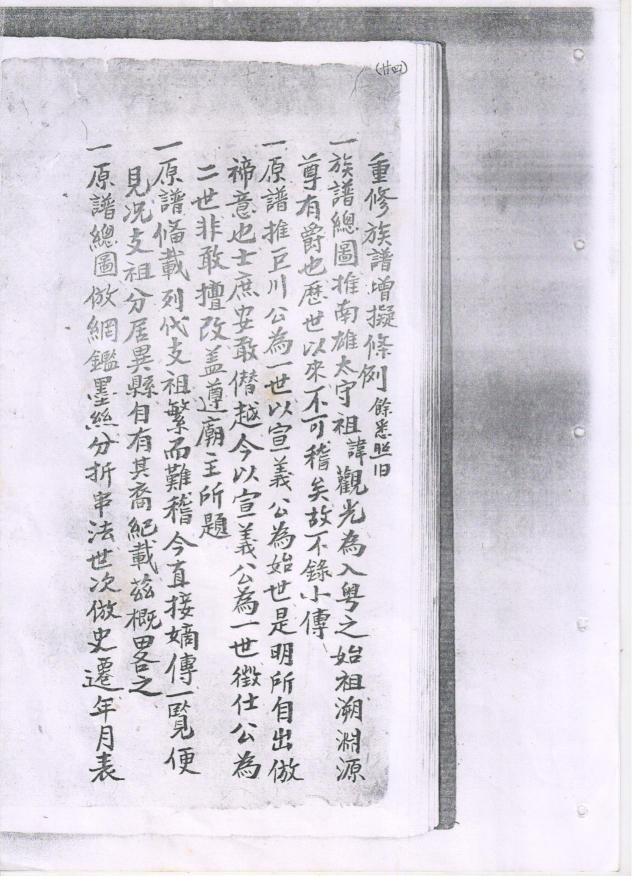 (廿四)
重修族譜增擬條例 餘悉照旧
一族譜總圖推南雄太守祖諱觀光為入粤之始祖溯淵源
尊有爵也歷世以來不可稽矣故不錄小傳
一原譜推巨川公為一世以宣義公為始世是明所自出倣
禘意也士庶安敢僭越今以宣義公為一世徵仕公為
二世非敢擅改盖遵廟主所題
一原譜俻載列代支祖繁而難稽今直接嫡傳一覧便
見况支祖分居異縣自有其裔紀載茲概畧之
一原譜總圖倣綱鑑墨絲分折串法世次倣史遷年月表